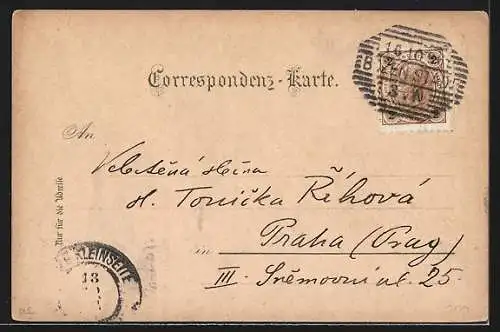 16.10
3-N
Correspondenz-Karte.
An
Velectěná slečna
sl. Tonička Říhová
in Praha (Prag)
III. Sněmovní ul. 25.
Nur für die Adresse
KLEINSEITE
13